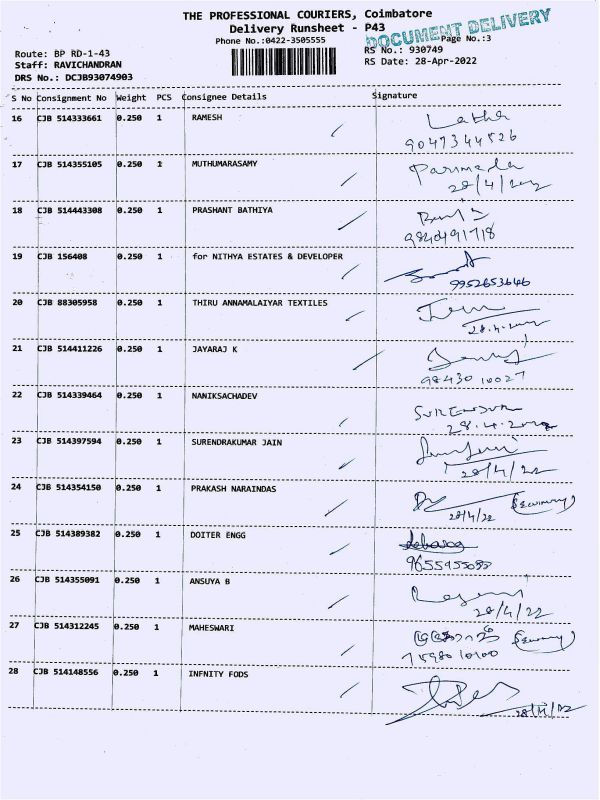 THE PROFESSIONAL COURIERS, Coimbatore
Delivery Runsheet - P43
DOCUMENT DELIVERY
Phone No.:0422-3505555
Page No.:3
Route: BP RD-1-43
RS No.: 930749
Staff: RAVICHANDRAN
RS Date: 28-Apr-2022
DRS No.: DCJB93074903
S No Consignment No Weight PCS Consignee Details Signature
16 CJB 514333661 0.250 1 RAMESH Latha
9047344526
17 CJB 514355105 0.250 1 MUTHUMARASAMY Parimala
28/4/2022
18 CJB 514443308 0.250 1 PRASHANT BATHIYA
9840491718
19 CJB 156408 0.250 1 for NITHYA ESTATES & DEVELOPER
9952653646
20 CJB 88305958 0.250 1 THIRU ANNAMALAIYAR TEXTILES
28.4.2022
21 CJB 514411226 0.250 1 JAYARAJ K
98430 10027
22 CJB 514339464 0.250 1 NANIKSACHADEV
28.4.2022
23 CJB 514397594 0.250 1 SURENDRAKUMAR JAIN
28/4/22
24 CJB 514354150 0.250 1 PRAKASH NARAINDAS
28/4/22
25 CJB 514389382 0.250 1 DOITER ENGG
26 CJB 514355091 0.250 1 ANSUYA B
28/4/22
27 CJB 514312245 0.250 1 MAHESWARI
28 CJB 514148556 0.250 1 INFNITY FODS
28/4/22